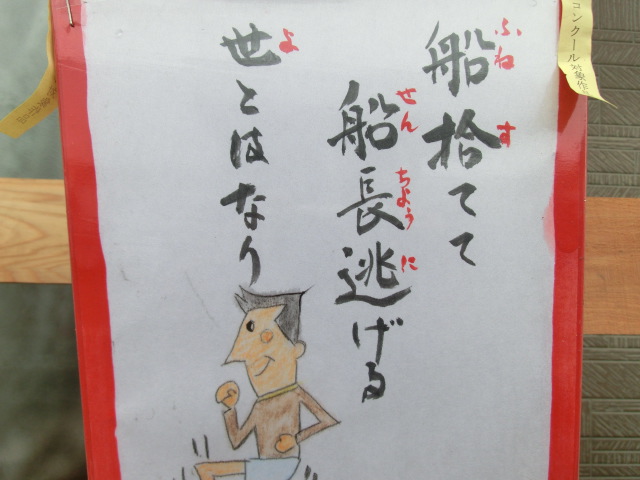 船捨てて
ふね す
船長逃げる
せん ちょう に
世とはなり
よ
コンクール対象作